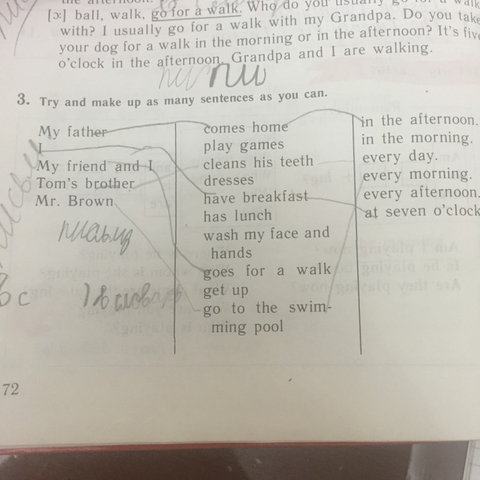 the afternoon.
[ɔ:] ball, walk, go for a walk. Why do you usually go for a walk
with? I usually go for a walk with my Grandpa. Do you take
your dog for a walk in the morning or in the afternoon? It's five
o'clock in the afternoon. Grandpa and I are walking.
3. Try and make up as many sentences as you can.
My father
I
My friend and I
Tom's brother
Mr. Brown
comes home
play games
cleans his teeth
dresses
have breakfast
has lunch
wash my face and
hands
goes for a walk
get up
go to the swim-
ming pool
in the afternoon.
in the morning.
every day.
every morning.
every afternoon.
at seven o'clock
72